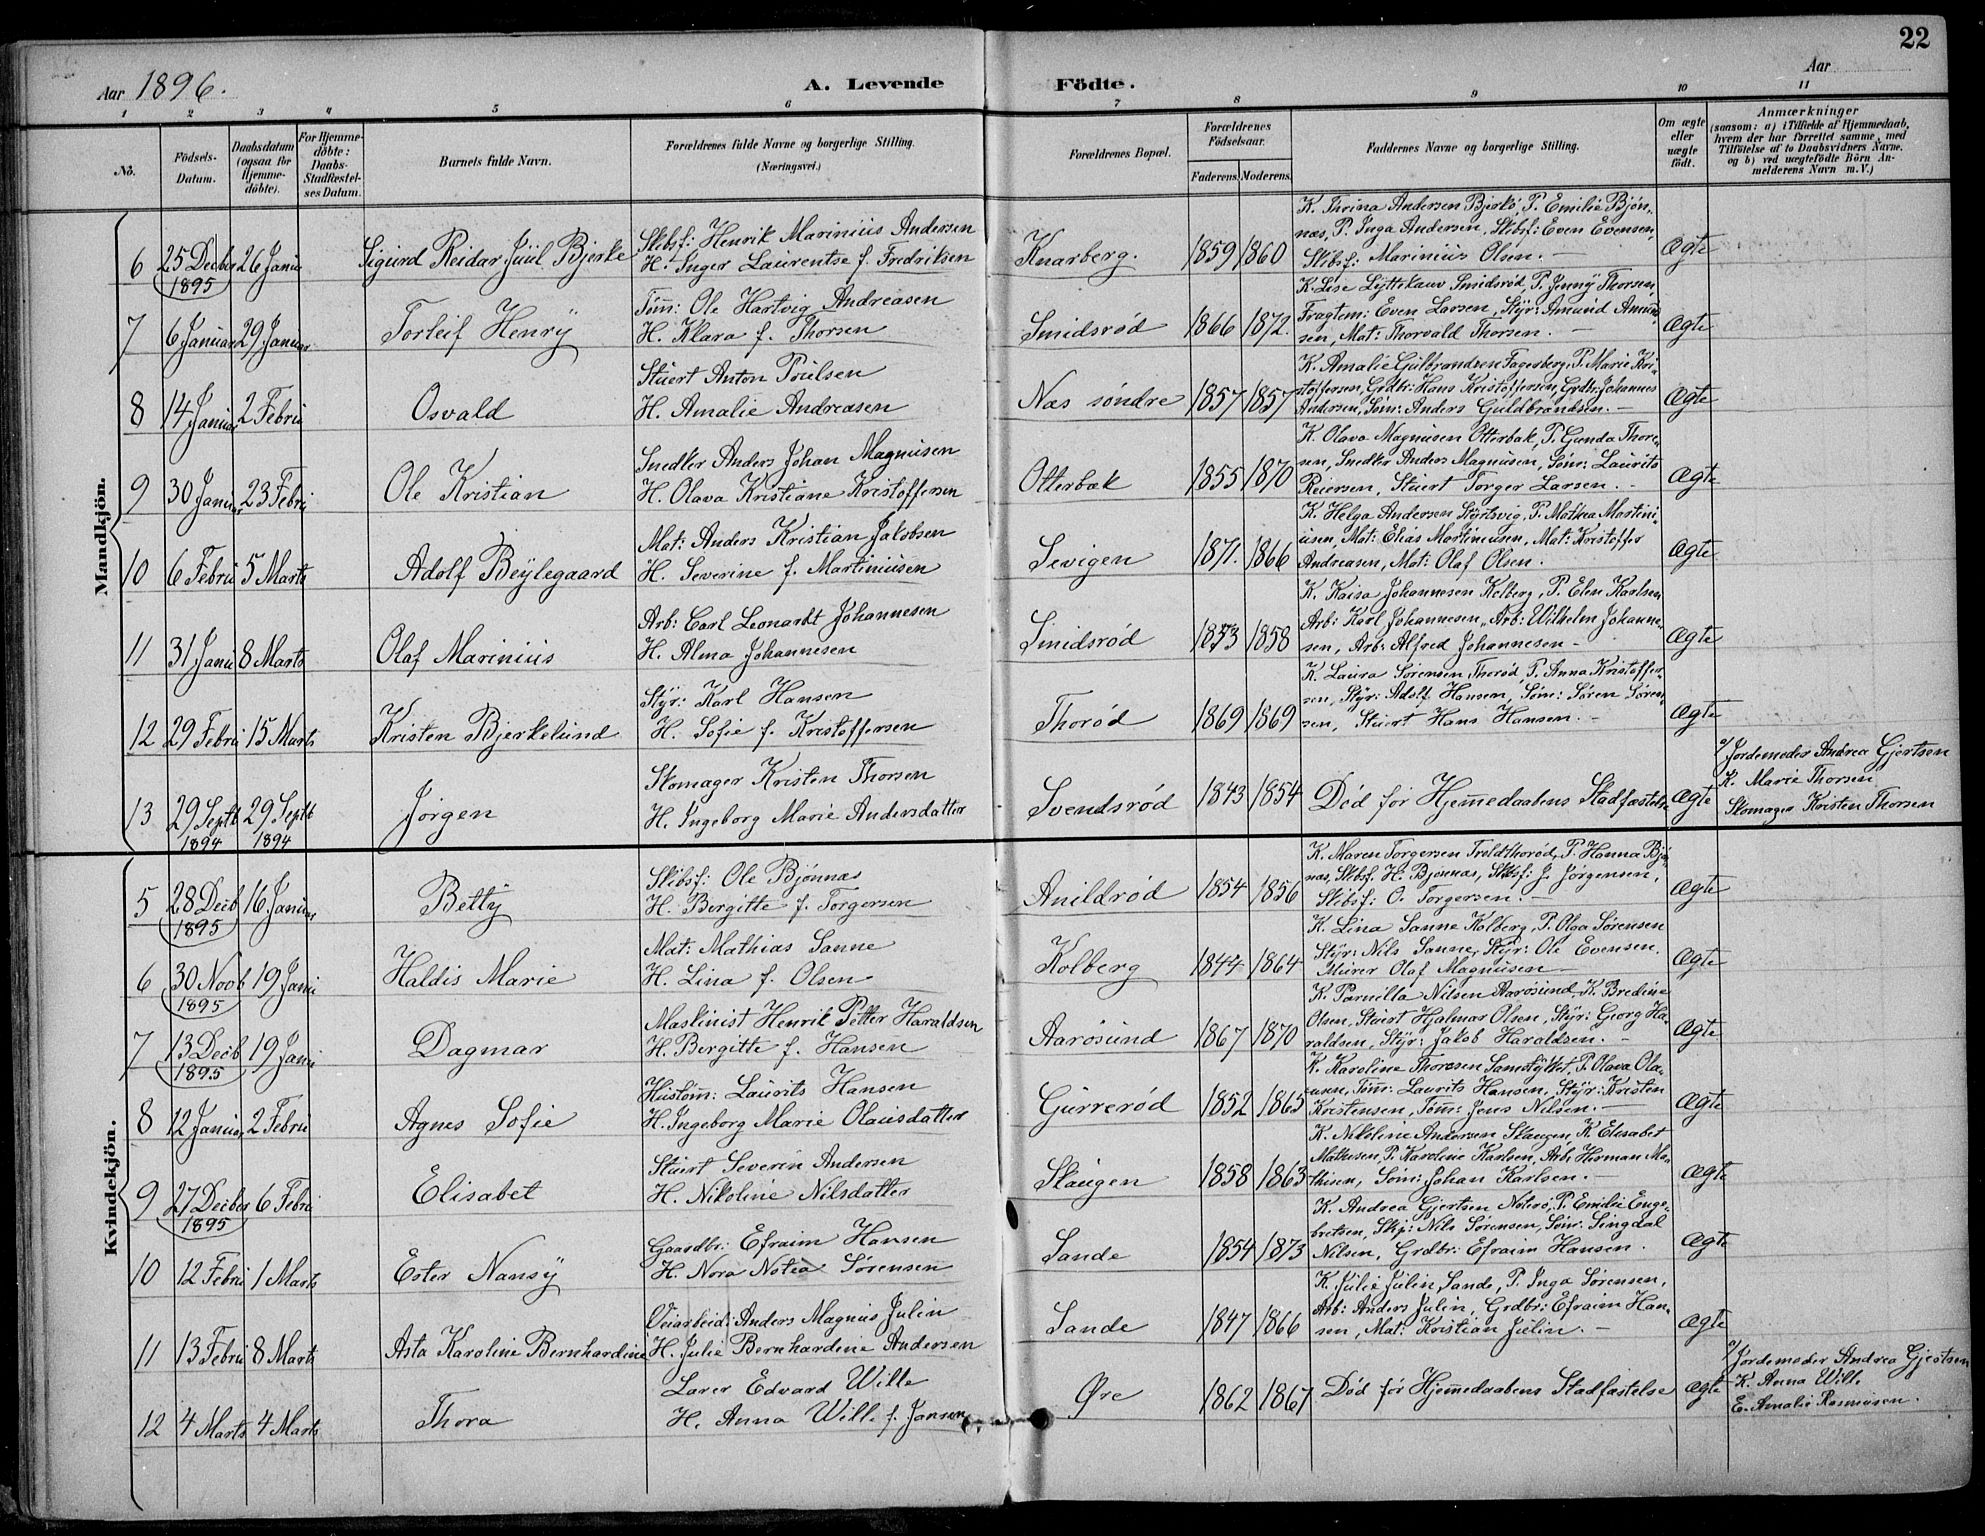 22
Aar 1896.
A. Levende Födte.
Aar
1 2 3 4 5 6 7 8 9 10 11
No.
Födsels-Datum.
Daabsdatum (ogsaa for Hjemmedöbte).
For Hjemmedöbte: Daabs-Stadfæstelses Datum.
Barnets fulde Navn.
Forældrenes fulde Navne og borgerlige Stilling. (Næringsvei.)
Forældrenes Bopæl.
Forældrenes Födselsaar.
Faderens. Moderens.
Faddernes Navne og borgerlige Stilling.
Om ægte eller uægte födt.
Anmærkninger
(saasom: a) i Tilfælde af Hjemmedaab,
hvem der har forrettet samme, med
Tilföielse af to Daabsvidners Navne,
og b) ved uægtefödte Börn An-
melderens Navn m.V.)
Mandkjön.
6 25 Decbr 1895 26 Janu Sigurd Reidar Juul Bjerke
Skibsf: Henrik Marinius Andersen
H. Inger Laurentse f. Fredriksen
Knarberg. 1859 1860
K. Thrina Andersen Bjerkö, P. Emilie Bjøn-
næs, P. Inga Andersen, Skibsf: Even Evensen,
Skibsf: Marinius Olsen.
Ægte
7 6 Januar 29 Januar Torleif Henry
Töm: Ole Hartvig Andreasen
H. Klara f. Thorsen
Smidsrød 1866 1872.
K. Lise Smidsrød, P. Jenny Thorsen,
Fragtem: Even Larsen, Styr: Amund Amund-
sen, Mat: Thorvald Thorsen.
Ægte
8 14 Januar 2 Febru Osvald
Stuert Anton Poulsen
H. Amalie Andreasen
Næs søndre 1857 1857
K. Amalie Gulbrandsen Fagerberg, P. Marie Kri-
stoffersen, Grdbr: Hans Kristoffersen, Grdbr: Johannes
Andersen, Søm: Anders Guldbrandsen.
Ægte
9 30 Januar 23 Febru Ole Kristian
Snedker Anders Johan Magnusen
H. Olava Kristiane Kristoffersen
Otterbæk 1855 1870
K. Olava Magnusen Otterbæk, P. Gunda Thore-
sen, Snedker Anders Magnusen, Søm: Laurits
Reiersen, Stuert Torger Larsen.
Ægte
10 6 Febru 5 Marts Adolf Beylegaard
Mat: Anders Kristian Jakobsen
H. Severine f. Martiniusen
Sevigen 1871. 1866
K. Helga Andersen Styrtsvig, P. Mathea Martini-
usen, Mat: Elias Martiniusen, Mat: Kristoffer
Andreasen, Mat: Olaf Olsen.
Ægte
11 31 Janu 8 Marts Olaf Marinius
Arb: Carl Leonardt Johannesen
H. Alma Johannesen
Smidsrød 1853 1858
K. Kaisa Johannesen Kolberg, P. Elen Karlsen
Arb: Karl Johannesen, Arb: Wilhelm Johanne-
sen, Arb: Alfred Johannesen
Ægte
12 29 Febru 15 Marts Kristen Bjerkelund
Styr: Karl Hansen
H. Sofie f. Kristoffersen
Thorød 1869 1869
K. Laura Sørensen Thorød, P. Anna Kristoffer-
sen, Styr: Adolf Hansen, Søm: Søren Søren-
sen, Stuert Hans Hansen.
Ægte
13 29 Septb 1894 29 Septb 1894 Jörgen
Skomager Kristen Thorsen
H. Ingeborg Marie Andersdatter
Svendsrød 1843 1854
Död før Hjemmedaabens Stadfæstelse
Ægte
a/ Jordemoder Andrea Gjertsen
K. Marie Thorsen
Skomager Kristen Thorsen
Kvindekjön.
5 28 Decb 1895 16 Januar Betty
Skibsf: Ole Bjönnæs
H. Bergitte f. Torgersen
Anildrød 1854 1856
K. Maren Torgersen Troldthorød, P. Hanna Bjø-
næs, Skibsf. H. Bjønnæs, Skibsf: J. Jørgensen,
Skibsf: O. Torgersen.
Ægte
6 30 Novb 1895 19 Janu Haldis Marie
Mat: Mathias Sanne
H. Lina f. Olsen
Kolberg 1844 1864
K. Lina Sanne Kolberg, P. Olga Sørensen
Styr: Nils Sanne, Styr: Ole Evensen.
Murer Olaf Magnusen
Ægte
7 13 Decb 1895 19 Janu Dagmar
Maskinist Henrik Petter Haraldsen
H. Bergitte f. Hansen
Aarøsund 1867 1870
K. Parnilla Nilsen Aarøsund, K. Bredine
Olsen, Stuert Hjalmar Olsen, Styr: Georg Ha-
raldsen, Styr: Jakob Haraldsen.
Ægte
8 12 Januar 2 Febru Agnes Sofie
Hustöm: Laurits Hansen
H. Ingeborg Marie Olausdatter
Gurrerød 1852 1865
K. Karoline Thoresen, P. Olava Ola-
usen, Tøm: Laurits Hansen, Styr: Kristen
Kristensen, Tøm: Jens Nilsen.
Ægte
9 27 Decber 1895 6 Febru Elisabet
Stuert Severin Andersen
H. Nikoline Nilsdatter
Skaugen 1858 1863
K. Nikoline Andersen Skaugen, K. Elisabet
Mathisen, P. Karoline Karlsen, Arb: Herman Ma-
thisen, Søm: Johan Karlsen.
Ægte
10 12 Febru 1 Marts Ester Nansy
Gaardbr: Efraim Hansen
H. Nora Notea Sørensen
Sande 1854 1873
K. Andrea Gjertsen Nøterø, P. Emilie Enge-
bretsen, Skp: Nils Sørensen, Sønr. Singdal
Nilsen, Grdbr: Efraim Hansen.
Ægte
11 13 Febru 8 Marts Asta Karoline Bernhardine
Veiarbeid: Anders Magnus Julin
H. Julie Bernhardine Andersen
Sande 1847 1866
K. Julie Julin Sande, P. Inga Sørensen,
Arb: Anders Julin, Grdbr: Efraim Han-
sen, Mat: Kristian Julin.
Ægte
12 4 Marts 4 Marts Thora
Lærer Edvard Wille
H. Anna Wille f. Jansen
Øre 1862 1867
Død før Hjemmedaabens Stadfæstelse
Ægte
a/ Jordemoder Andrea Gjertsen
K. Anna Wille
E. Amalie Rasmusen.